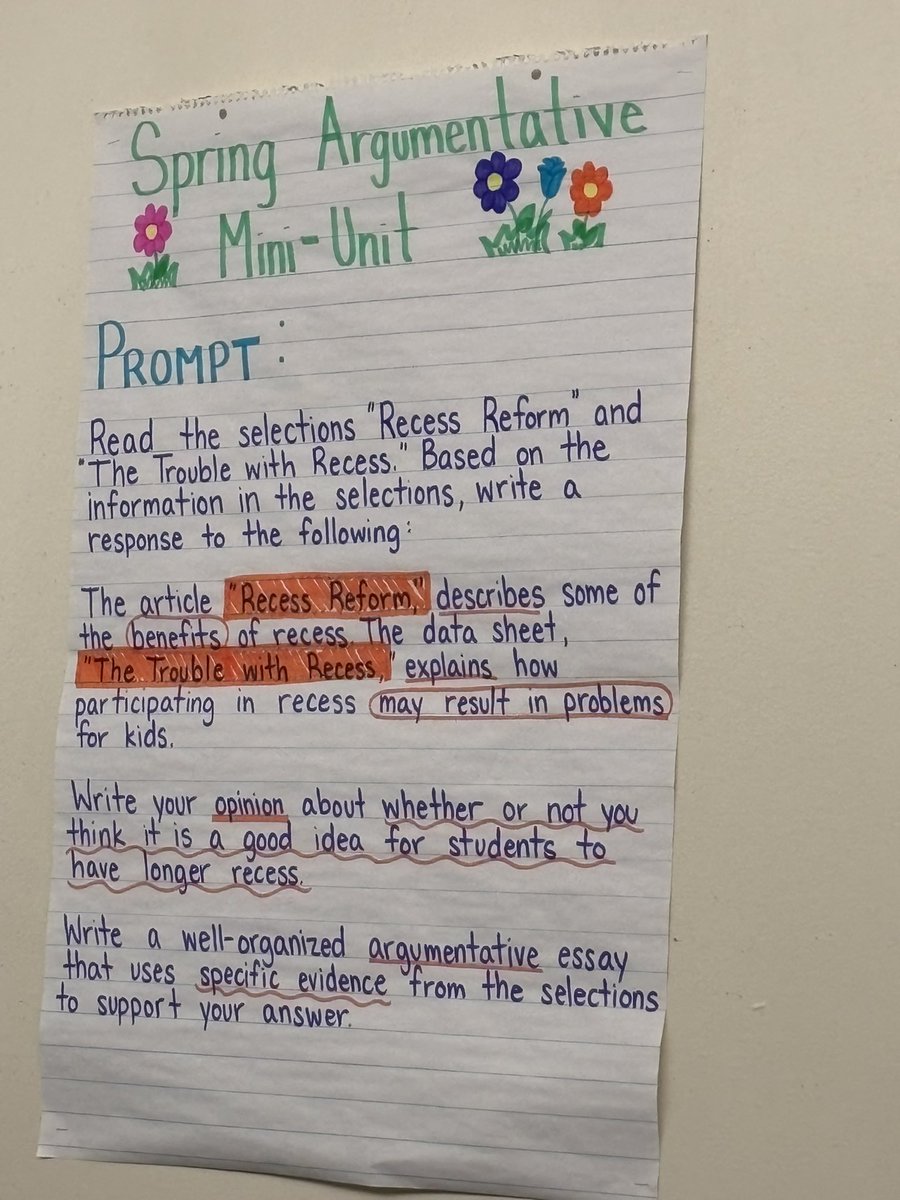 Spring Argumentative
Mini-Unit
PROMPT:
Read the selections "Recess Reform" and
"The Trouble with Recess." Based on the
information in the selections, write a
response to the following:
The article "Recess Reform," describes some of
the benefits of recess. The data sheet,
"The Trouble with Recess," explains how
participating in recess may result in problems
for kids.
Write your opinion about whether or not you
think it is a good idea for students to
have longer recess.
Write a well-organized argumentative essay
that uses specific evidence from the selections
to support your answer.